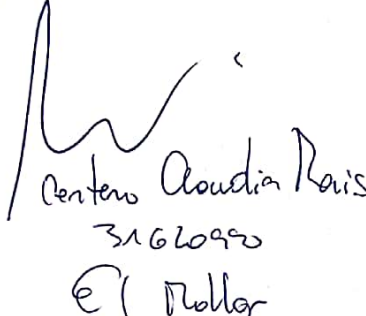 Centeno Claudia Rois
31620990
El Mollar